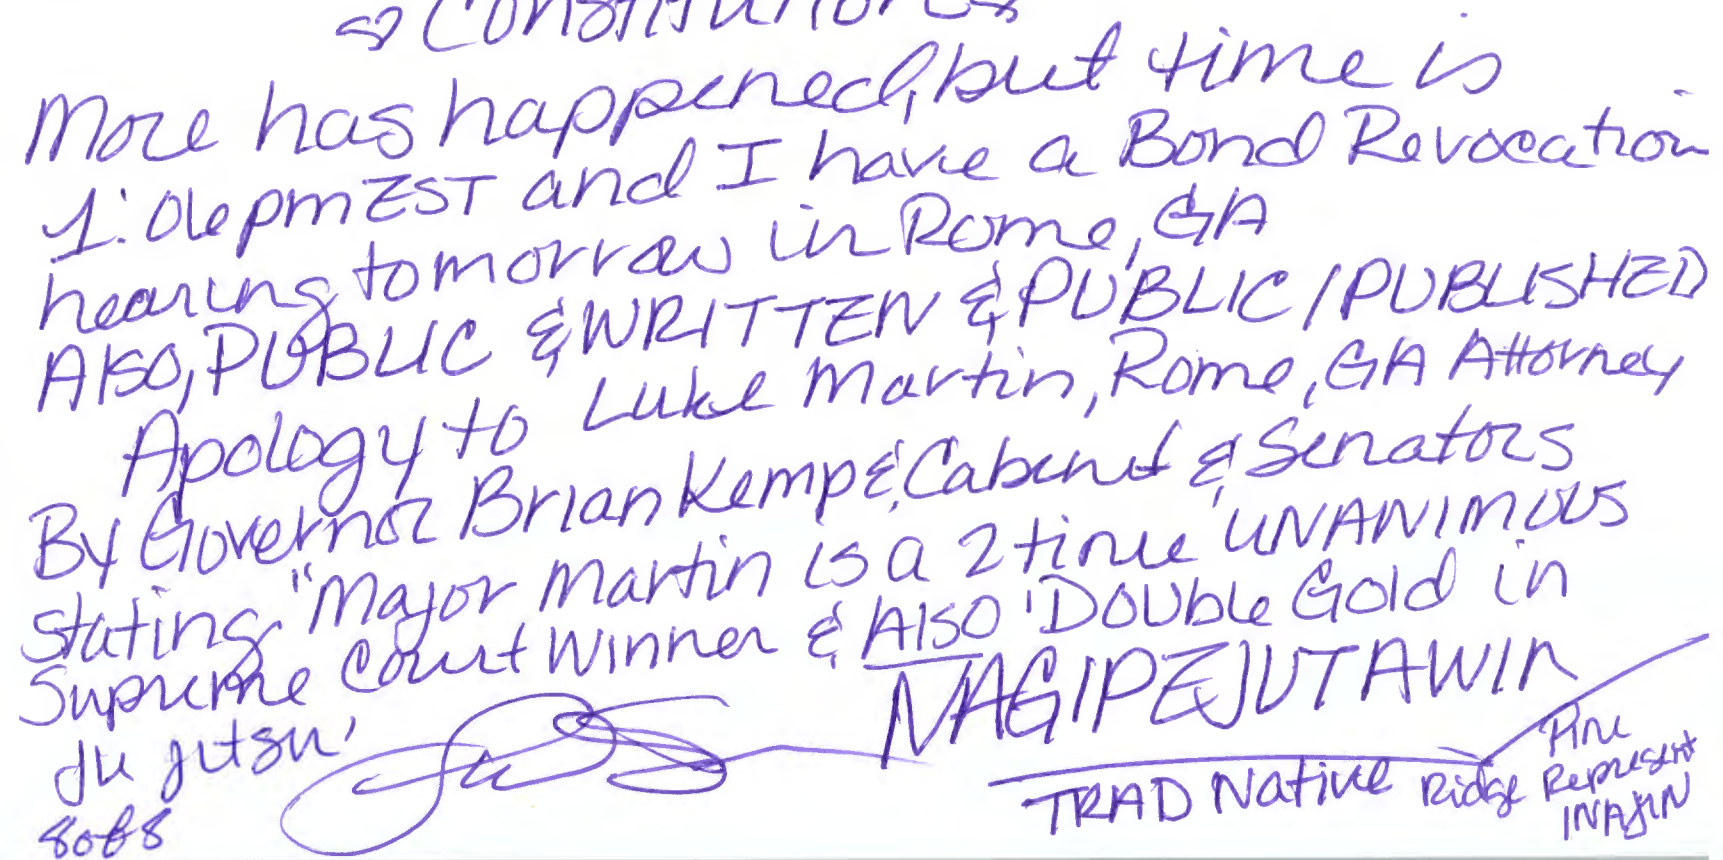 Constitutions
More has happened, but time is
1:06pm EST and I have a Bond Revocation
hearing tomorrow in Rome, GA
Also, PUBLIC & WRITTEN & PUBLIC/PUBLISHED
Apology to Luke Martin, Rome, GA Attorney
By Governor Brian Kemp & Cabenet & Senators
stating "Major Martin is a 2 time UNANIMOUS
Supreme Court Winner & Also 'Double Gold in
Ju Jutsu'
NAGIPEJUTAWIN
TRAD Native
Pine
Ridge Represent
INAJIN
8 of 8